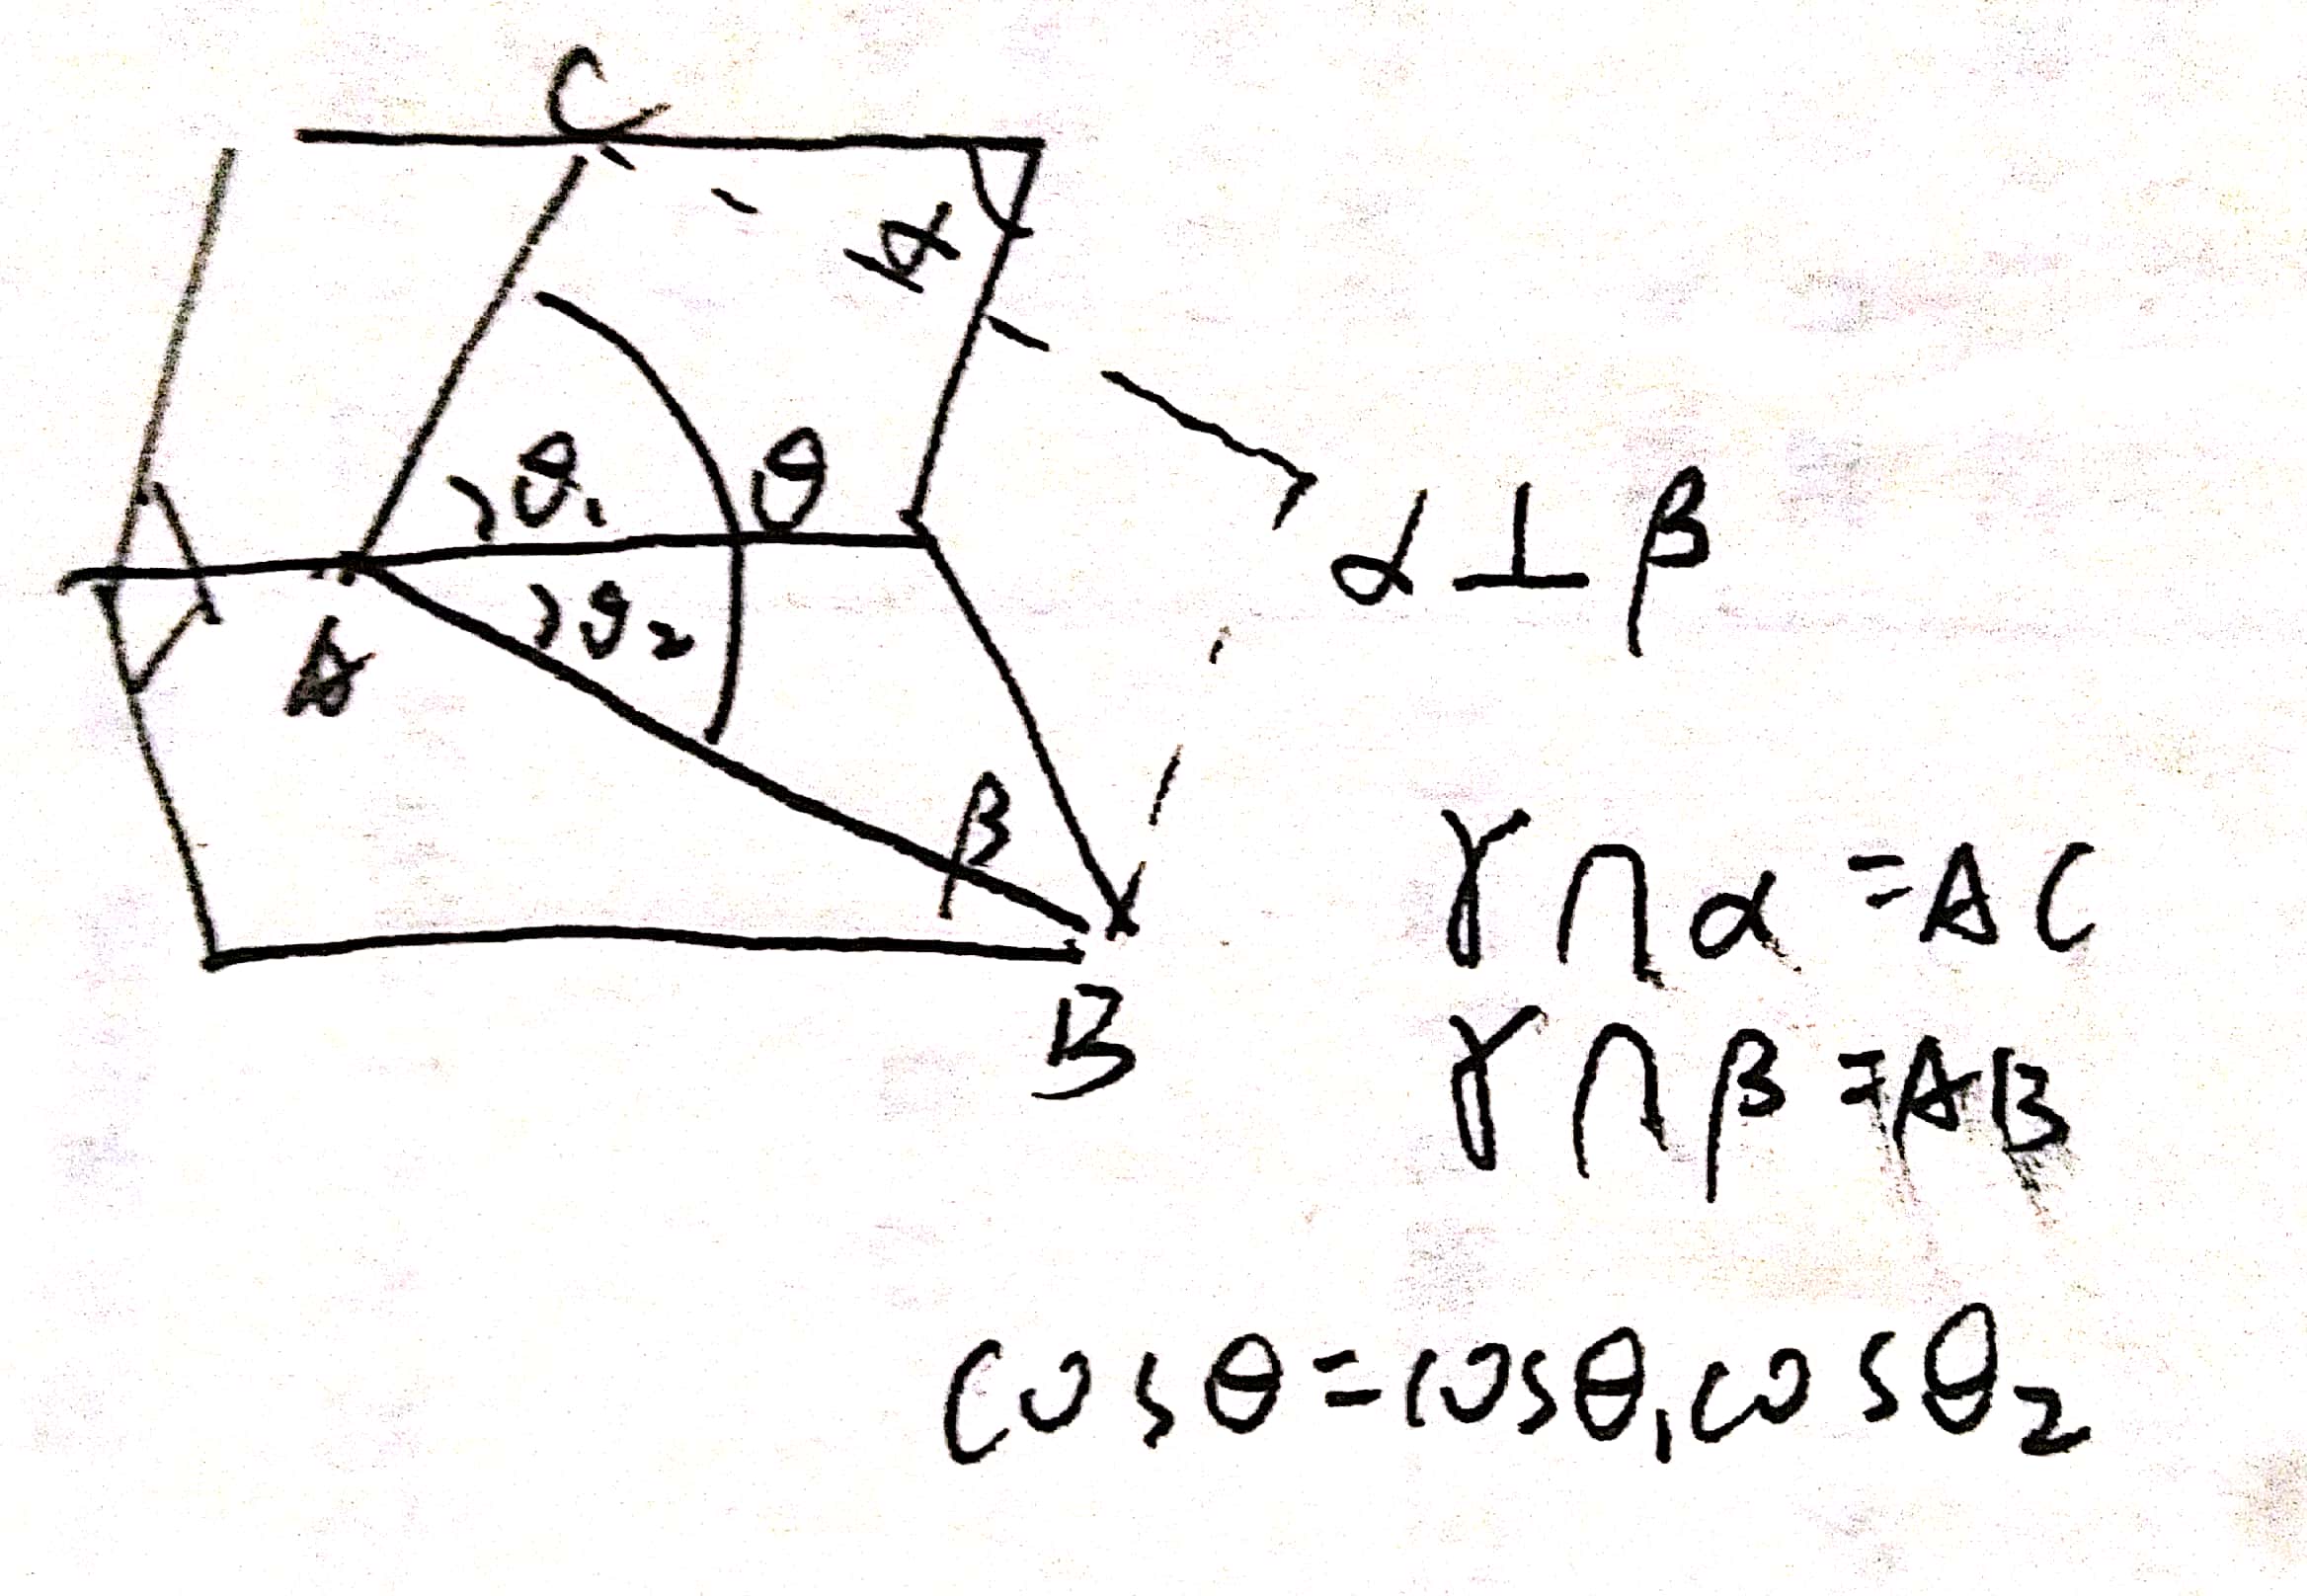 C
α
θ₁ θ
α ⊥ β
A
θ₂
β
γ ∩ α = AC
B
γ ∩ β = AB
cosθ = cosθ₁cosθ₂